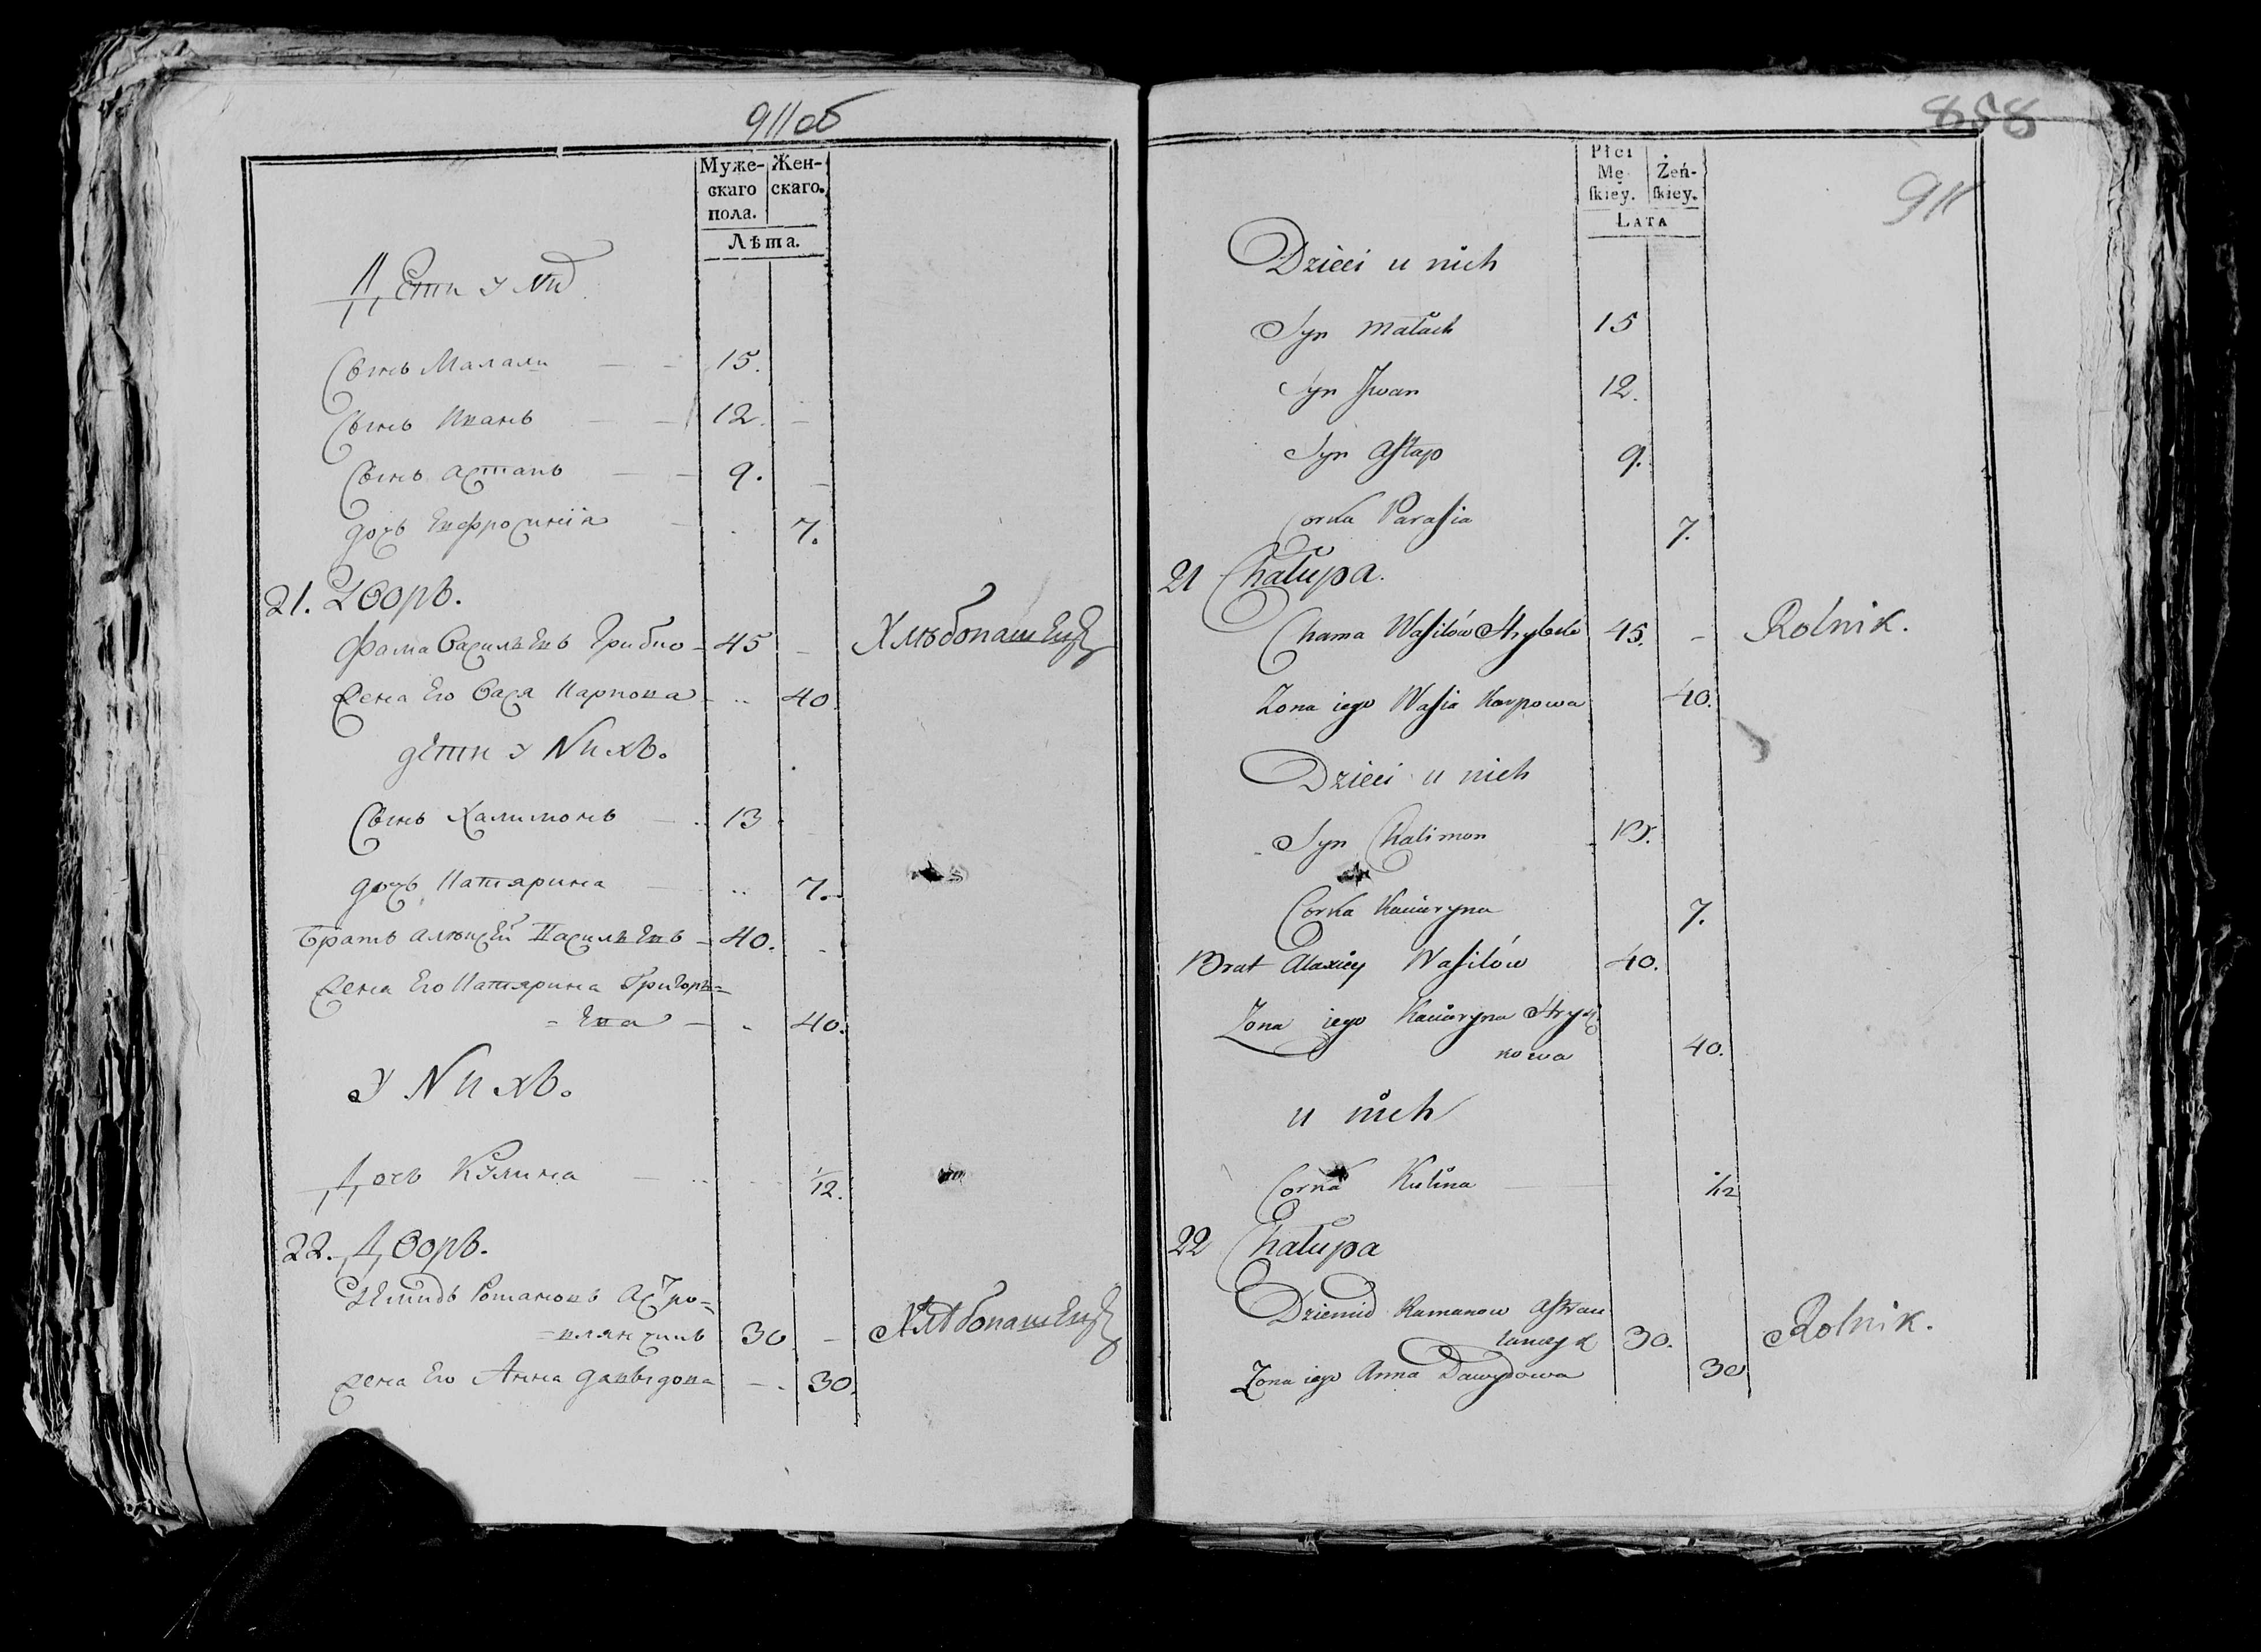 911об
Муже-
скаго
пола.
Жен-
скаго.
Лѣта.
Дети у них
Сынъ Малахи — 15.
Сынъ Иванъ — 12. —
Сынъ Астапъ — 9. —
дочь Ефросинія 7.
21. Дворъ.
Фама Васильевъ Грибко — 45 — Хлѣбопашецъ
Жена Его Вася Карпова 40
дети у Нихъ.
Сынъ Халимонъ — 13
дочь Катярина 7.
Братъ Алѣксей Васильевъ — 40. —
Жена Его Катярина Григорь=
= Ева — 40.
У Нихъ.
Дочь Кулина — 1/12.
22. Дворъ.
Демидъ Романовъ Астро=
=влянчикъ 30 — Хлѣбопашецъ
Жена Его Анна Давыдова — 30.
858
911
Płci
Mę-
ſkiey.
Żeń-
ſkiey.
LATA
Dzieci u nich
Syn Małach 15
Syn Jwan 12.
Syn Aſtap 9.
Corka Paraſia 7.
21 Chałupa.
Chama Waſilów Hrybko 45. — Rolnik.
Zona iego Waſia Karpowa 40.
Dzieci u nich
Syn Chalimon 13.
Corka Kaciaryna 7.
Brat Alaxiey Waſilów 40.
Zona iego Kaciaryna Hryh
nowa 40.
u nich
Corka Kulina 1/12
22 Chałupa
Dziemid Ramanow Aſtrau
lanczyk 30. Rolnik.
Zona iego Anna Dawydowa 30